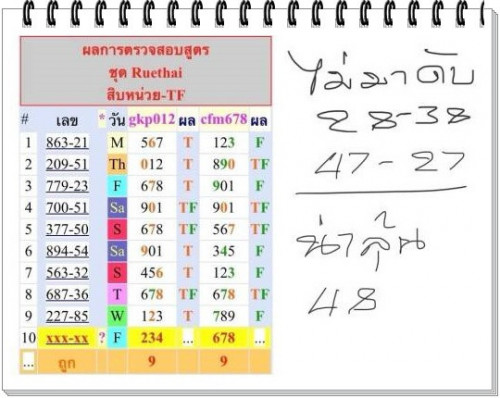 ผลการตรวจสอบสูตร
ชุด Ruethai
สิบหน่วย-TF
# เลข * วัน gkp012 ผล cfm678 ผล
1 863-21 M 567 T 123 F
2 209-51 Th 012 T 890 TF
3 779-23 F 678 T 901 F
4 700-51 Sa 901 TF 901 TF
5 377-50 S 678 TF 567 TF
6 894-54 Sa 901 T 345 F
7 563-32 S 456 T 123 F
8 687-36 T 678 TF 678 TF
9 227-85 W 123 T 789 F
10 xxx-xx ? F 234 ... 678 ...
... ถูก 9 9
ไม่มาดับ
28-38
47-27
น่าลุ้น
48